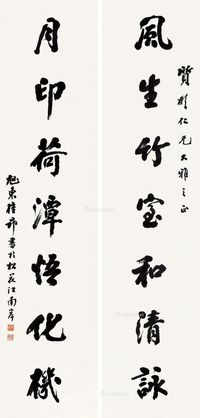 賢 仁兄大雅之正
風生竹室和清詠
月印荷潭悟化機
旭東 書於松花江南岸